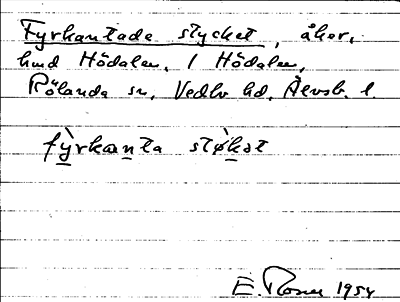 Fyrkantade stycket, åker,
hmd Hödalen, 1 Hödalen,
Rölanda sn, Vedbo hd, Älvsb. l
fỳrkanta støkət
E. Rosell 1954